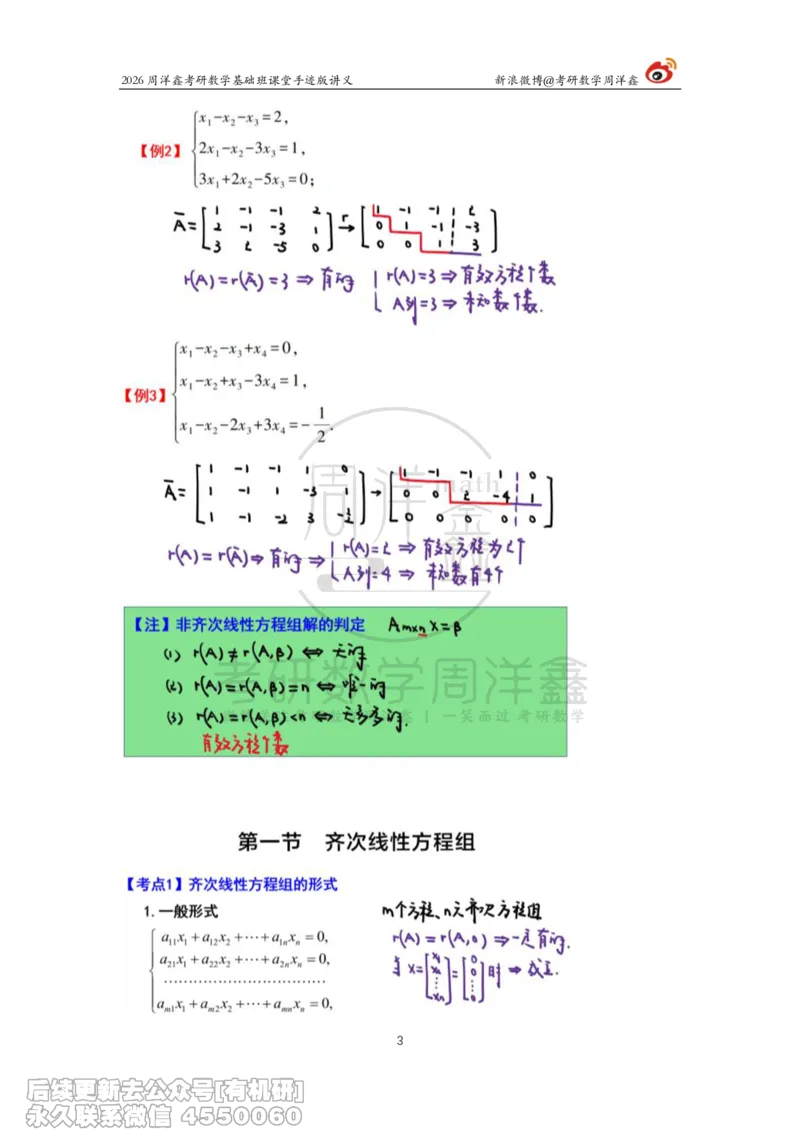 2026 周洋鑫考研数学基础班课堂手迹版讲义 新浪微博@考研数学周洋鑫
【例2】 { x₁-x₂-x₃=2,
2x₁-x₂-3x₃=1,
3x₁+2x₂-5x₃=0;
Ā = [ 1 -1 -1 2 ; 2 -1 -3 1 ; 3 2 -5 0 ] r→ [ 1 -1 -1 2 ; 0 1 -1 -3 ; 0 0 1 3 ]
r(A)=r(Ā)=3 ⇒ 有解 { r(A)=3 ⇒ 有效方程个数
A列=3 ⇒ 未知数个数.
【例3】 { x₁-x₂-x₃+x₄=0,
x₁-x₂+x₃-3x₄=1,
x₁-x₂-2x₃+3x₄=-1/2.
Ā = [ 1 -1 -1 1 0 ; 1 -1 1 -3 1 ; 1 -1 -2 3 -1/2 ] → [ 1 -1 -1 1 0 ; 0 0 2 -4 1 ; 0 0 0 0 0 ]
r(A)=r(Ā) ⇒ 有解 ⇒ { r(A)=2 ⇒ 有效方程为2个
A列=4 ⇒ 未知数有4个
【注】非齐次线性方程组解的判定 Aₘₓₙ X=β
(1) r(A)≠r(A,β) ⇔ 无解
(2) r(A)=r(A,β)=n ⇔ 唯一解
(3) r(A)=r(A,β)<n ⇔ 无穷多解.
有效方程个数
周洋鑫 math
考研数学周洋鑫
一笑而过 考研数学
第一节 齐次线性方程组
【考点1】齐次线性方程组的形式
1.一般形式 m个方程、n元齐次方程组
{ a₁₁x₁+a₁₂x₂+⋯+a₁ₙxₙ=0, r(A)=r(A,0) ⇒ 一定有解.
a₂₁x₁+a₂₂x₂+⋯+a₂ₙxₙ=0, 当 X=[x₁ x₂ ⋮ xₙ]=[0 0 ⋮ 0]时 ⇒ 成立.
⋯⋯⋯⋯⋯⋯⋯⋯⋯⋯
aₘ₁x₁+aₘ₂x₂+⋯+aₘₙxₙ=0,
3
后续更新去公众号[有机研]
永久联系微信 4550060